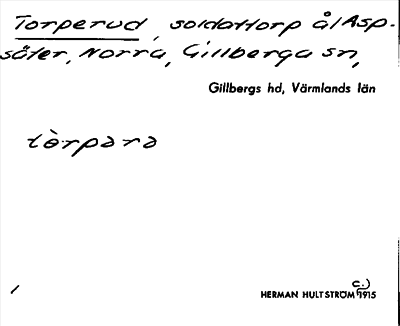 Torperud, soldattorp å Asp-
säter, Norra, Gillberga sn,
Gillbergs hd, Värmlands län
tὲrpara
c.)
HERMAN HULTSTRÖM 1915